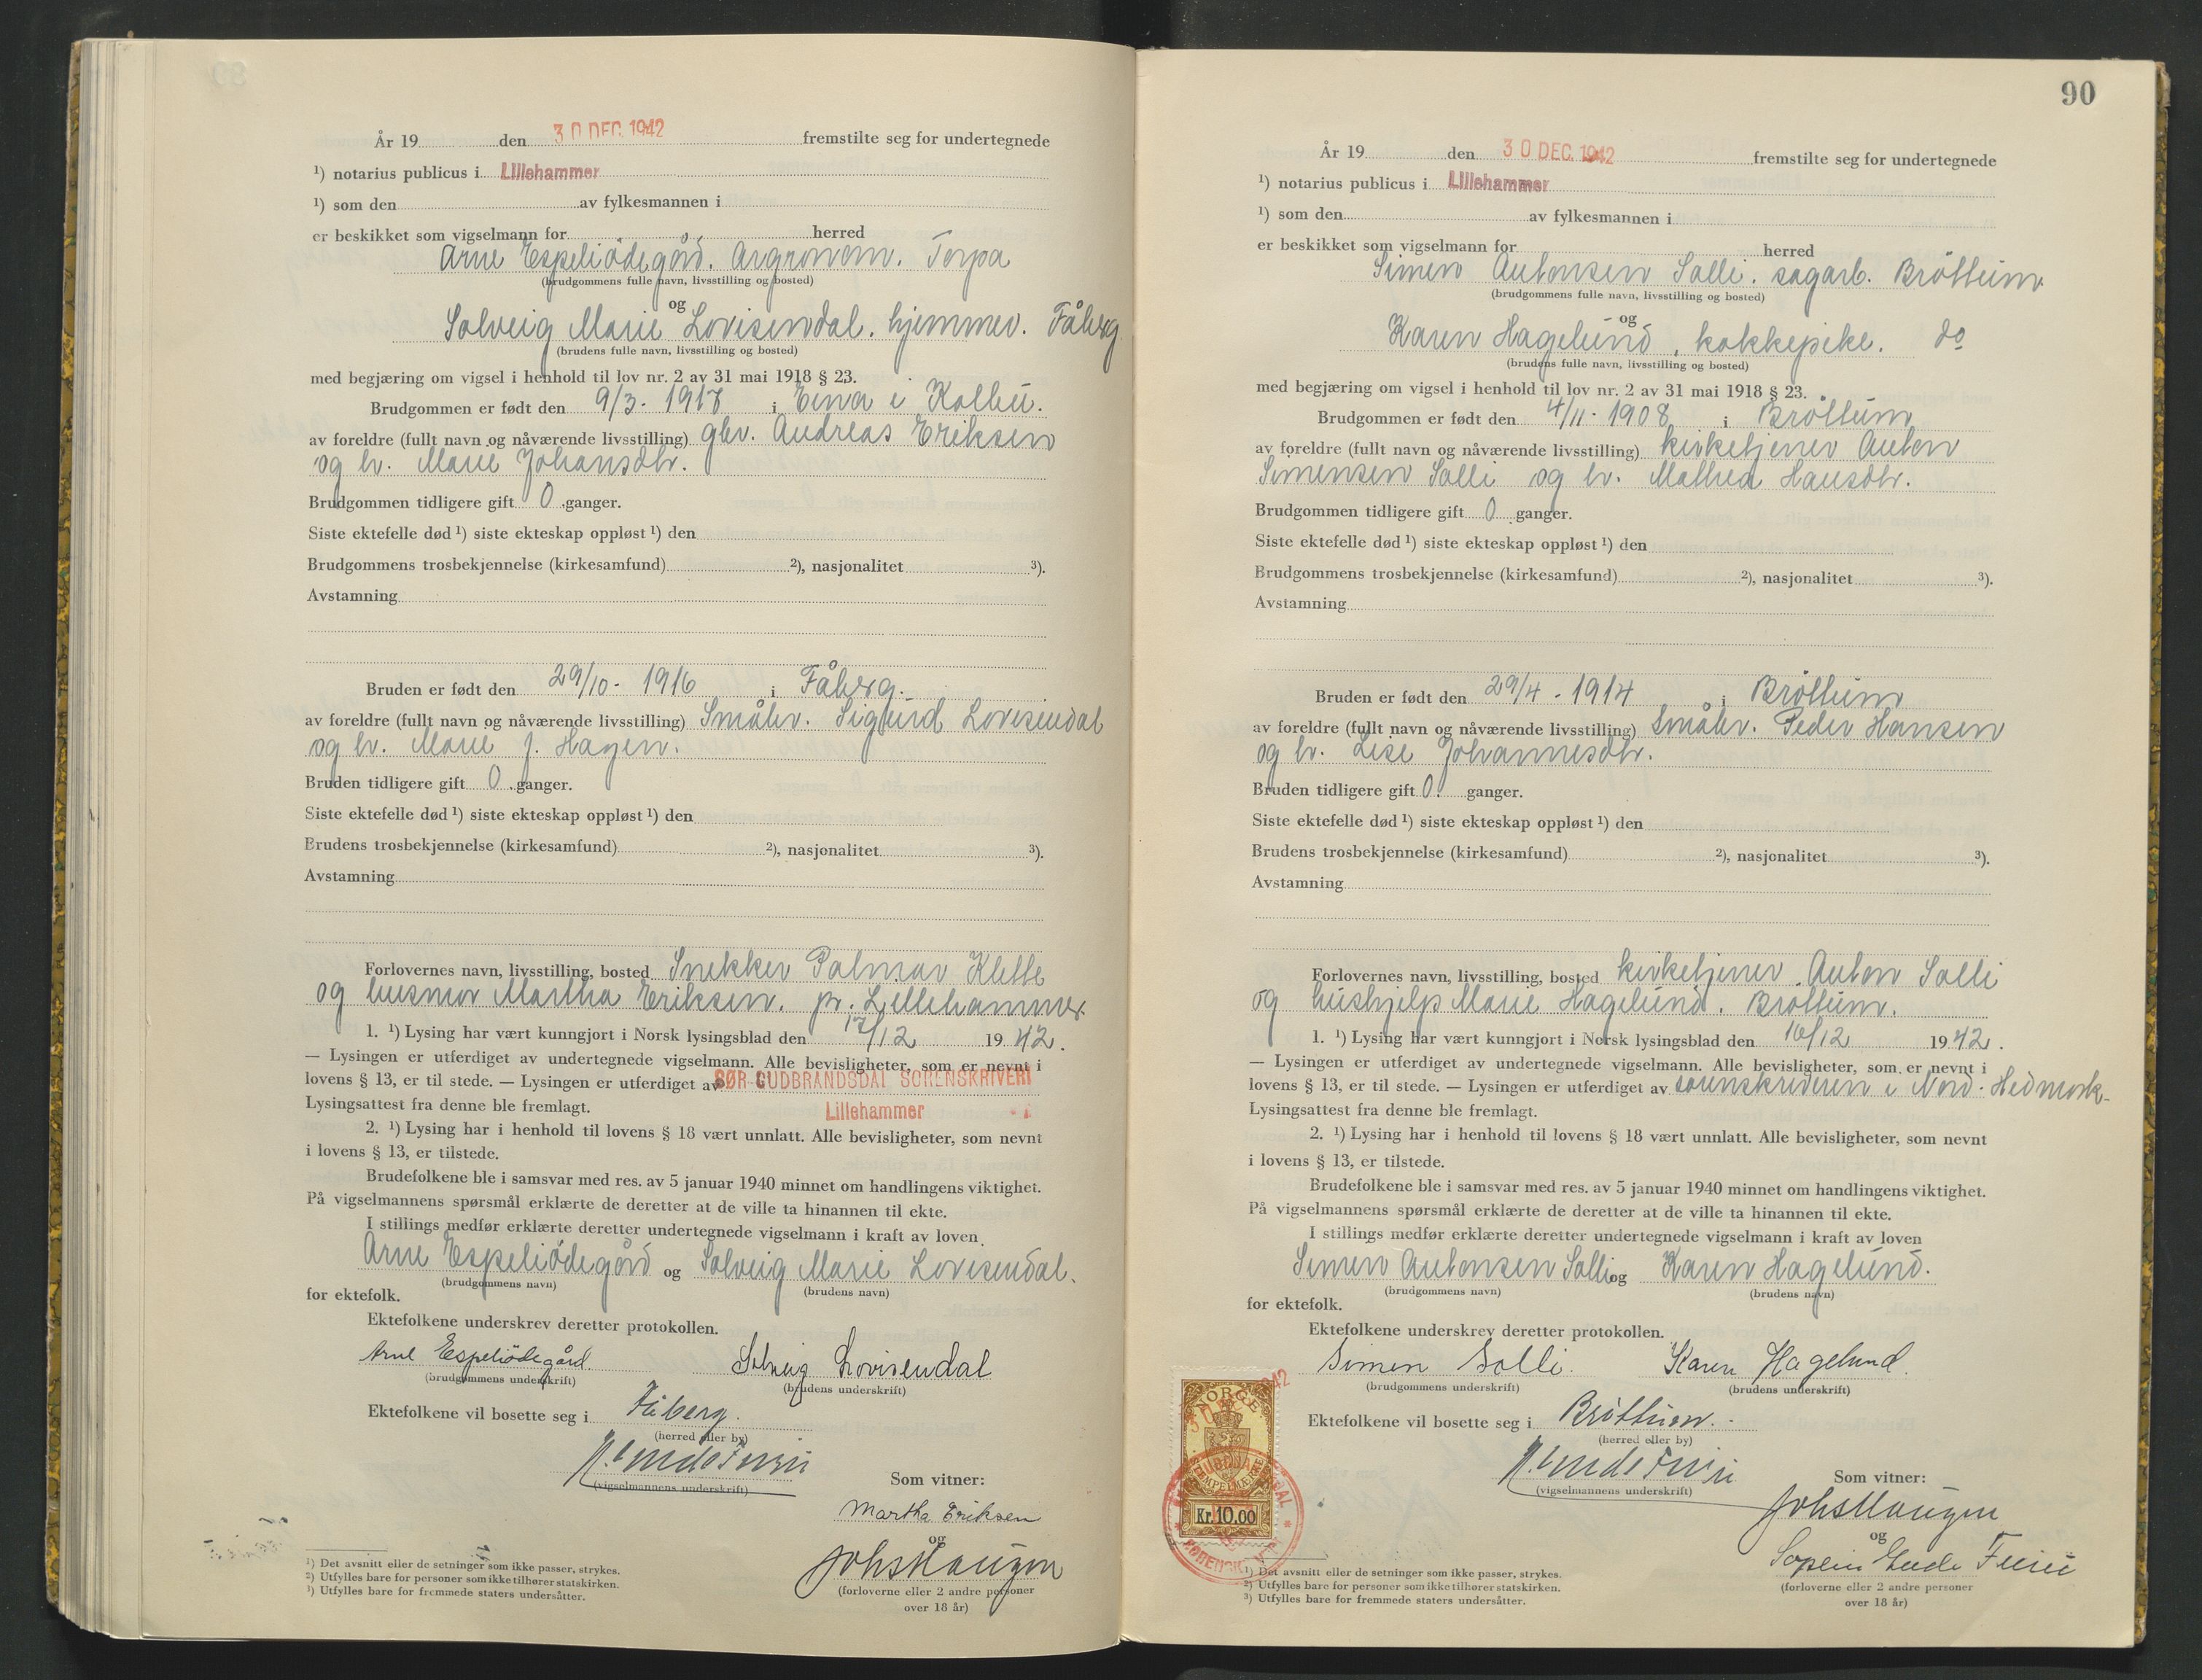 År 19 den 30 DEC. 1942 fremstilte seg for undertegnede
¹) notarius publicus i Lillehammer
¹) som den av fylkesmannen i
er beskikket som vigselmann for herred
Arne Espeliödegård. Argronom. Torpa
(brudgommens fulle navn, livsstilling og bosted)
og
Solveig Marie Lovisendal. hjemmev. Fåberg
(brudens fulle navn, livsstilling og bosted)
med begjæring om vigsel i henhold til lov nr. 2 av 31 mai 1918 § 23.
Brudgommen er født den 9/3 - 1917 i Eina i Kolbu.
av foreldre (fullt navn og nåværende livsstilling) gbr. Andreas Eriksen
og h. Marie Johansdtr.
Brudgommen tidligere gift 0 ganger.
Siste ektefelle død ¹) siste ekteskap oppløst ¹) den
Brudgommens trosbekjennelse (kirkesamfund) ²), nasjonalitet ³).
Avstamning
Bruden er født den 29/10 - 1916 i Fåberg.
av foreldre (fullt navn og nåværende livsstilling) Småbr. Sigurd Lovisendal
og h. Marie J. Hagen.
Bruden tidligere gift 0 ganger.
Siste ektefelle død ¹) siste ekteskap oppløst ¹) den
Brudens trosbekjennelse (kirkesamfund) ²), nasjonalitet ³).
Avstamning
Forlovernes navn, livsstilling, bosted Snekker Palmar Klette
og husmor Martha Eriksen. pr. Lillehammer
1. ¹) Lysing har vært kunngjort i Norsk lysingsblad den 17/12 1942.
— Lysingen er utferdiget av undertegnede vigselmann. Alle bevisligheter, som er nevnt i
lovens § 13, er til stede. — Lysingen er utferdiget av SØR GUDBRANDSDAL SORENSKRIVERI
Lysingsattest fra denne ble fremlagt. Lillehammer
2. ¹) Lysing har i henhold til lovens § 18 vært unnlatt. Alle bevisligheter, som nevnt
i lovens § 13, er tilstede.
Brudefolkene ble i samsvar med res. av 5 januar 1940 minnet om handlingens viktighet.
På vigselmannens spørsmål erklærte de deretter at de ville ta hinannen til ekte.
I stillings medfør erklærte deretter undertegnede vigselmann i kraft av loven
Arne Espeliödegård og Solveig Marie Lovisendal.
(brudgommens navn) (brudens navn)
for ektefolk.
Ektefolkene underskrev deretter protokollen.
Arne Espeliödegård. Solveig Lovisendal
(brudgommens underskrift) (brudens underskrift)
Ektefolkene vil bosette seg i Fåberg.
(herred eller by)
(vigselmannens underskrift) Som vitner:
Martha Eriksen
og
Johs Haugen
(forloverne eller 2 andre personer
over 18 år)
¹) Det avsnitt eller de setninger som ikke passer, strykes.
²) Utfylles bare for personer som ikke tilhører statskirken.
³) Utfylles bare for fremmede staters undersåtter.
90
År 19 den 30 DEC. 1942 fremstilte seg for undertegnede
¹) notarius publicus i Lillehammer
¹) som den av fylkesmannen i
er beskikket som vigselmann for herred
Simen Antonsen Solli. sagarb. Bröttum
(brudgommens fulle navn, livsstilling og bosted)
og
Karen Hagelund, kokkepike. do
(brudens fulle navn, livsstilling og bosted)
med begjæring om vigsel i henhold til lov nr. 2 av 31 mai 1918 § 23.
Brudgommen er født den 4/11 - 1908 i Bröttum
av foreldre (fullt navn og nåværende livsstilling) kirketjener Anton
Simensen Solli og h. Mathea Hansdtr.
Brudgommen tidligere gift 0 ganger.
Siste ektefelle død ¹) siste ekteskap oppløst ¹) den
Brudgommens trosbekjennelse (kirkesamfund) ²), nasjonalitet ³).
Avstamning
Bruden er født den 29/4 - 1914 i Bröttum
av foreldre (fullt navn og nåværende livsstilling) Småbr. Peder Hansen
og h. Lise Johannesdtr.
Bruden tidligere gift 0. ganger.
Siste ektefelle død ¹) siste ekteskap oppløst ¹) den
Brudens trosbekjennelse (kirkesamfund) ²), nasjonalitet ³).
Avstamning
Forlovernes navn, livsstilling, bosted kirketjener Anton Solli
og hushjelp Marie Hagelund. Bröttum.
1. ¹) Lysing har vært kunngjort i Norsk lysingsblad den 16/12 1942.
— Lysingen er utferdiget av undertegnede vigselmann. Alle bevisligheter, som er nevnt i
lovens § 13, er til stede. — Lysingen er utferdiget av sorenskriveren i Nord-Hedmark
Lysingsattest fra denne ble fremlagt.
2. ¹) Lysing har i henhold til lovens § 18 vært unnlatt. Alle bevisligheter, som nevnt
i lovens § 13, er tilstede.
Brudefolkene ble i samsvar med res. av 5 januar 1940 minnet om handlingens viktighet.
På vigselmannens spørsmål erklærte de deretter at de ville ta hinannen til ekte.
I stillings medfør erklærte deretter undertegnede vigselmann i kraft av loven
Simen Antonsen Solli og Karen Hagelund.
(brudgommens navn) (brudens navn)
for ektefolk.
Ektefolkene underskrev deretter protokollen.
Simen Solli. Karen Hagelund.
(brudgommens underskrift) (brudens underskrift)
Ektefolkene vil bosette seg i Bröttum.
(herred eller by)
(vigselmannens underskrift) Som vitner:
Johs Haugen
og
(forloverne eller 2 andre personer
over 18 år)
NORGE
Kr. 10.00
¹) Det avsnitt eller de setninger som ikke passer, strykes.
²) Utfylles bare for personer som ikke tilhører statskirken.
³) Utfylles bare for fremmede staters undersåtter.